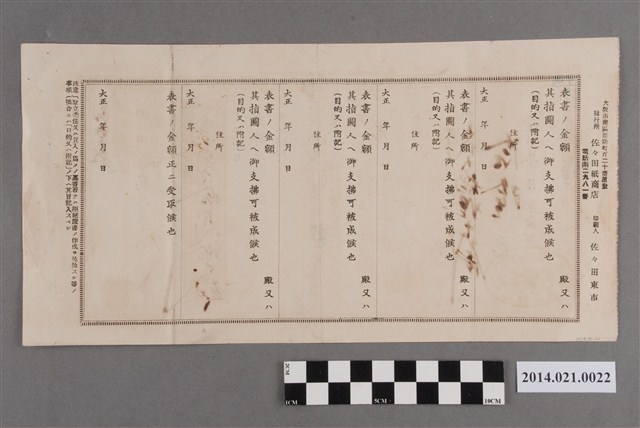 発行所 佐々田紙商店 印刷人 佐々田東市
表書ノ金額 殿又ハ
其指圖人ヘ御支拂可被成候也
(目的又ハ附記)
住所
大正 年 月 日
表書ノ金額 殿又ハ
其指圖人ヘ御支拂可被成候也
(目的又ハ附記)
住所
大正 年 月 日
表書ノ金額 殿又ハ
其指圖人ヘ御支拂可被成候也
(目的又ハ附記)
住所
大正 年 月 日
表書ノ金額 殿又ハ
其指圖人ヘ御支拂可被成候也
(目的又ハ附記)
住所
大正 年 月 日
表書ノ金額正ニ受取候也
大正 年 月 日
2CM
1CM 5CM 10CM
2014.021.0022